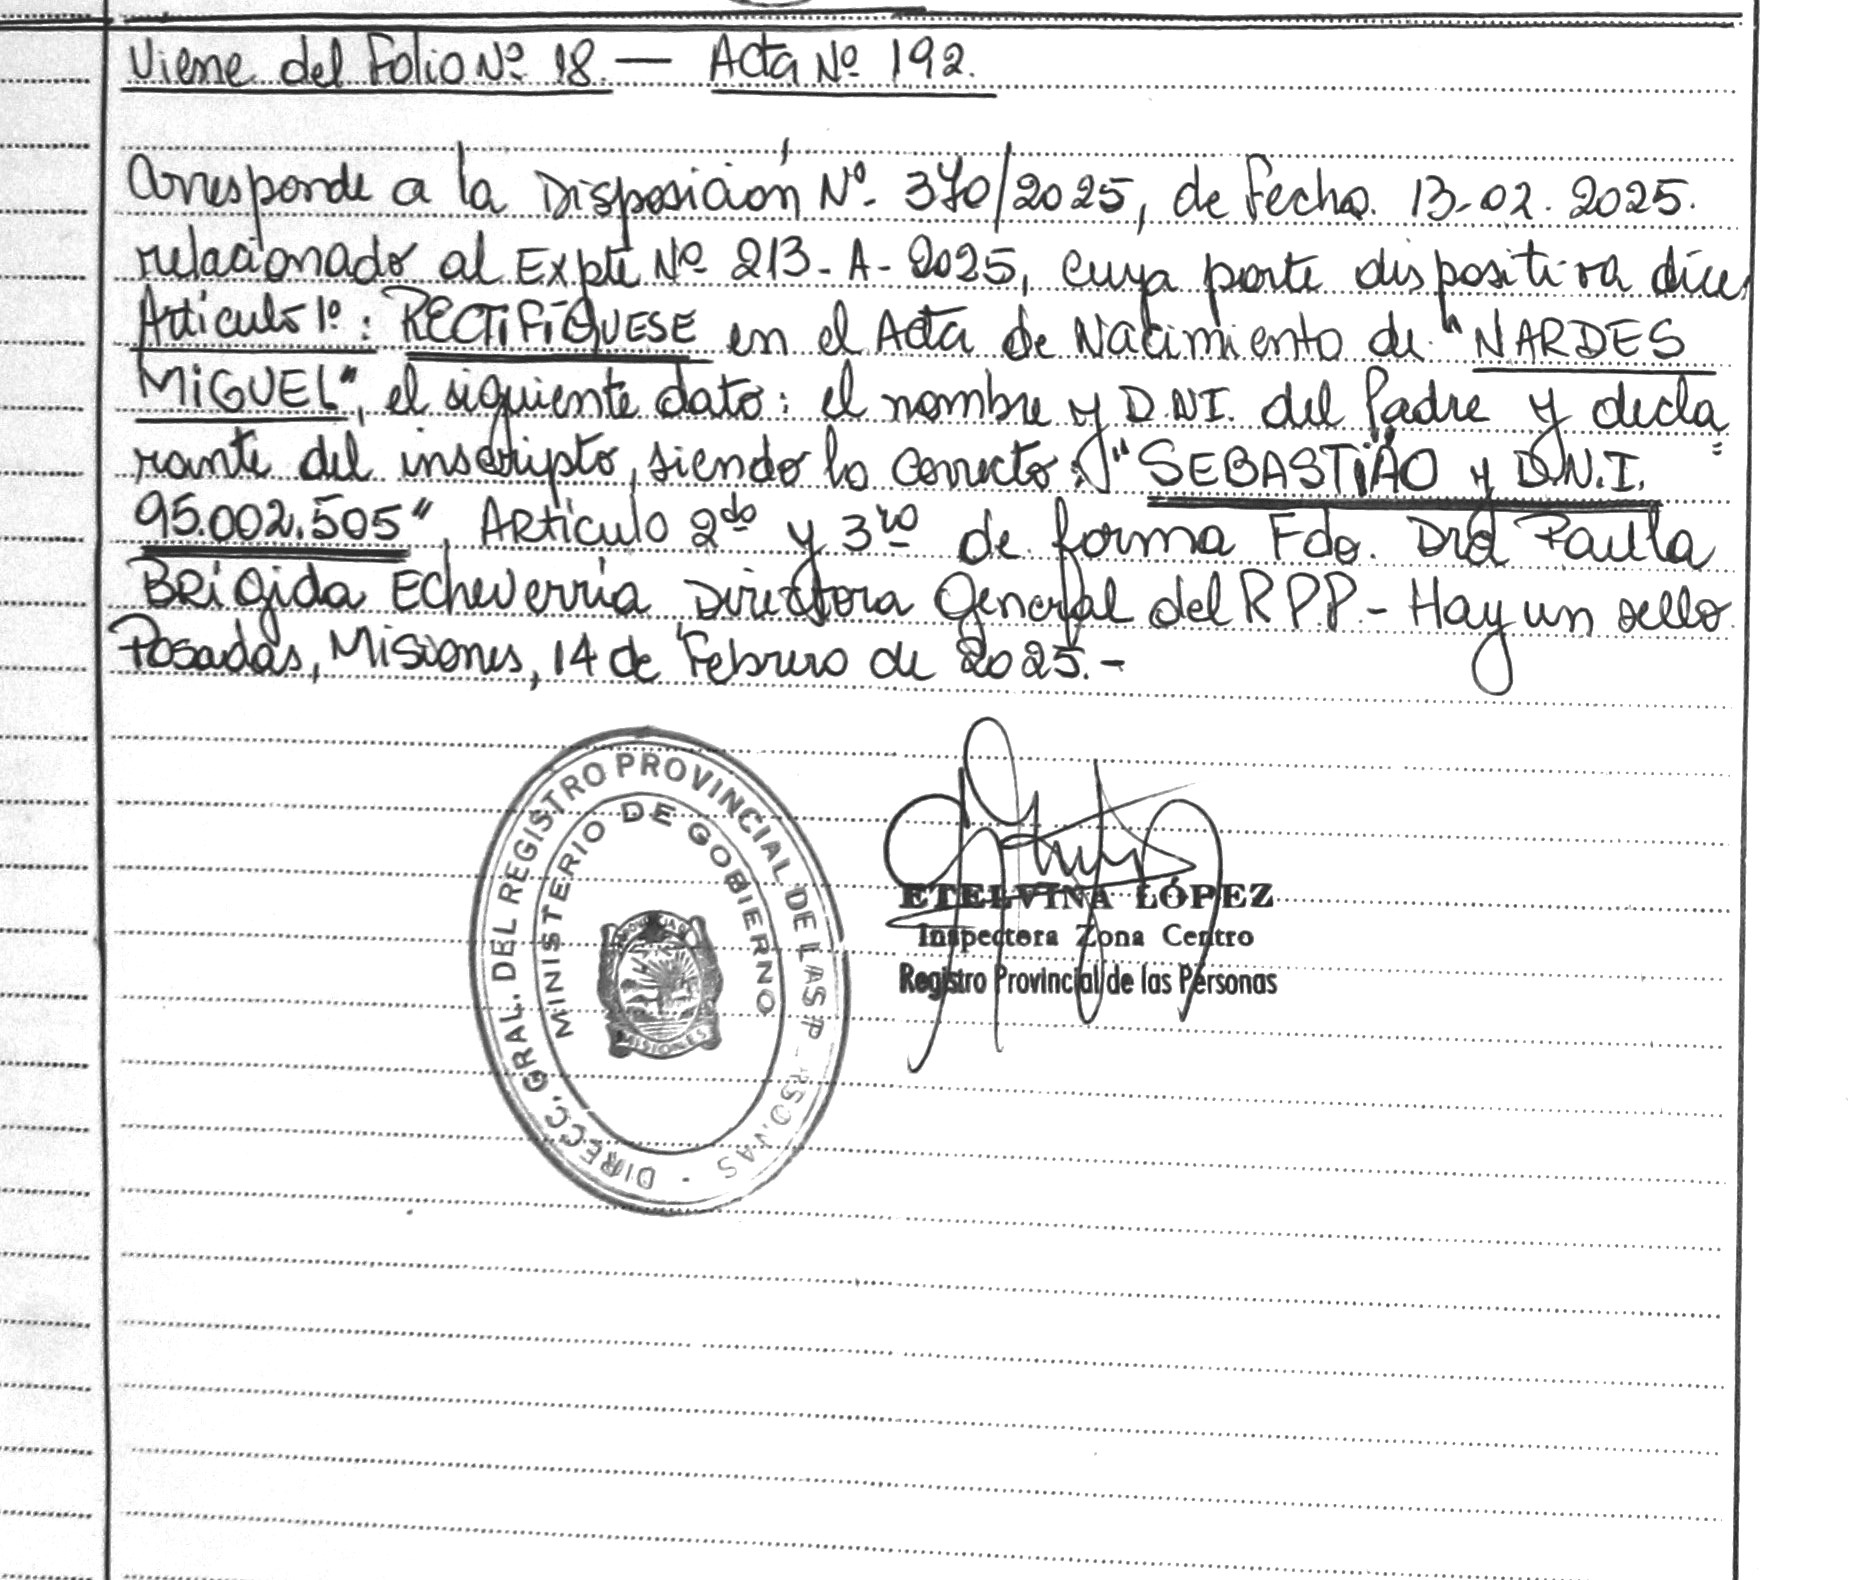 Viene del Folio Nº 18. — Acta Nº 192.
Corresponde a la Disposición Nº. 370/2025, de Fecha. 13-02. 2025.
relacionado al Expte Nº 213-A-2025, cuya parte dispositiva dice,
Artículo 1º: RECTIFÍQUESE en el Acta de Nacimiento de "NARDES
MIGUEL", el siguiente dato: el nombre y D.NI. del Padre y decla
rante del inscripto, siendo lo correcto: "SEBASTIÃO y D.N.I. =
95.002.505", Artículo 2do y 3ro de forma Fdo. Dra Paula
Brígida Echeverria Directora General del RPP.- Hay un sello
Posadas, Misiones, 14 de Febrero de 2025.-
DIRECC. GRAL. DEL REGISTRO PROVINCIAL DE LAS P RSONAS -
MINISTERIO DE GOBIERNO
MISIONES
ETELVINA LÓPEZ
Inspectora Zona Centro
Registro Provincial de las Personas